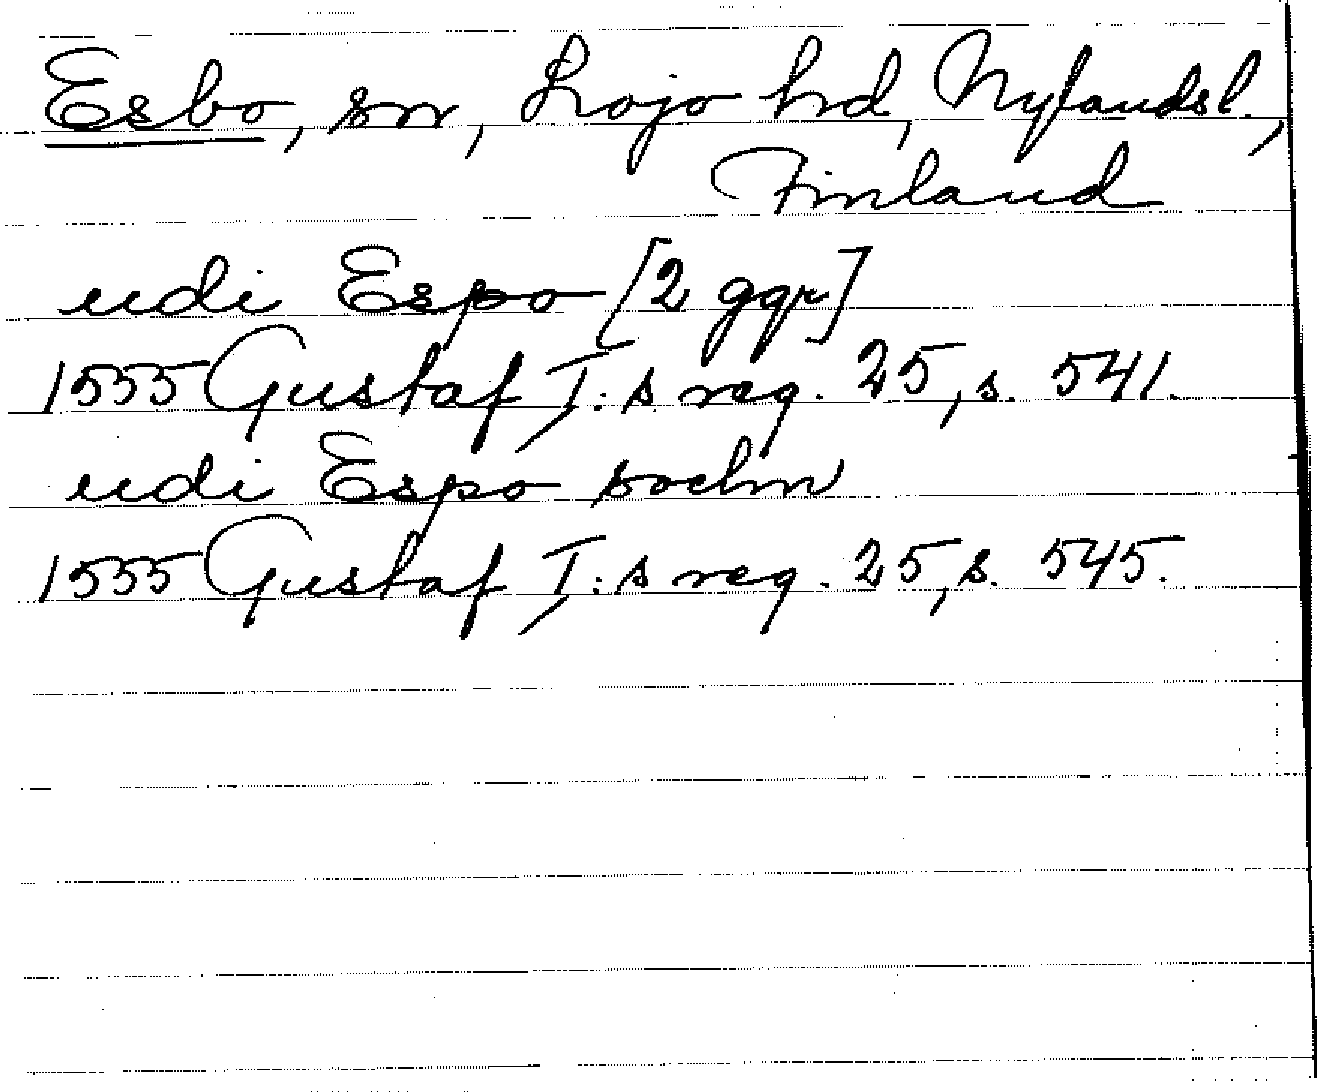 Esbo, sn, Lojo hd, Nylandsl.,
Finland
udi Espo [2 ggr]
1555 Gustaf I:s reg. 25, s. 541.
udi Espo sochn
1555 Gustaf I:s reg. 25, s. 545.